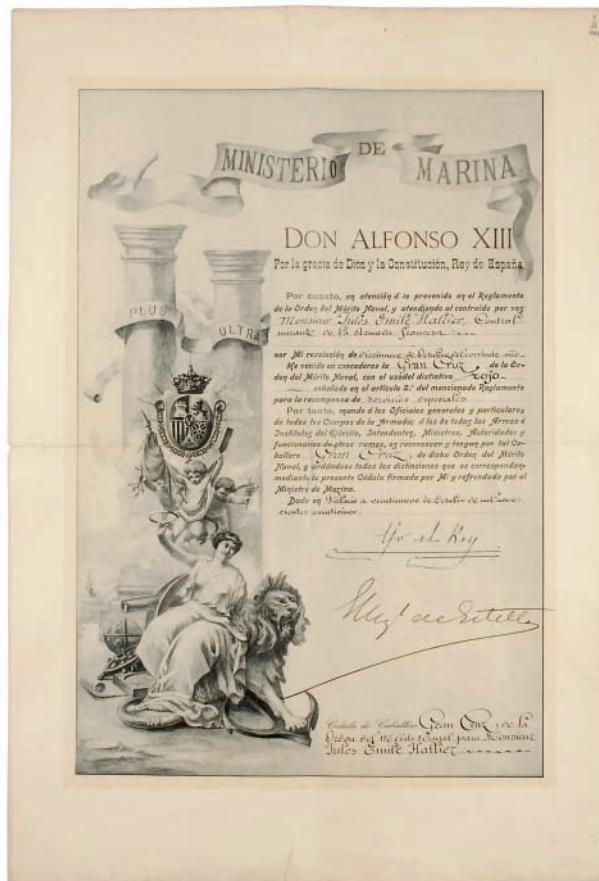 MINISTERIO DE MARINA
PLUS ULTRA
DON ALFONSO XIII
Por la gracia de Dios y la Constitución, Rey de España
Por cuanto, en atención á lo prevenido en el Reglamento
de la Orden del Mérito Naval, y atendiendo al contraído por vos
Monsieur Jules Emile Hallier, Contraal-
mirante de la Armada francesa
por Mi resolución de diecinueve de Octubre del corriente año
He venido en concederos la Gran Cruz, de la Or-
den del Mérito Naval, con el uso del distintivo rojo
señalado en el artículo 2.º del mencionado Reglamento
para la recompensa de servicios especiales
Por tanto, mando á los Oficiales generales y particulares
de todos los Cuerpos de la Armada; á los de todas las Armas é
Institutos del Ejército, Intendentes, Ministros, Autoridades y
funcionarios de otros ramos, os reconozcan y tengan por tal Ca-
ballero Gran Cruz, de dicha Orden del Mérito
Naval, y guardándoos todas las distinciones que os correspondan
mediante la presente Cédula firmada por Mí y refrendada por el
Ministro de Marina.
Dado en Palacio a veintinueve de Octubre de mil nove-
cientos veinticinco.
Yo el Rey
de Estella
Cédula de Caballero Gran Cruz, de la
Orden del Mérito Naval para Monsieur
Jules Emile Hallier